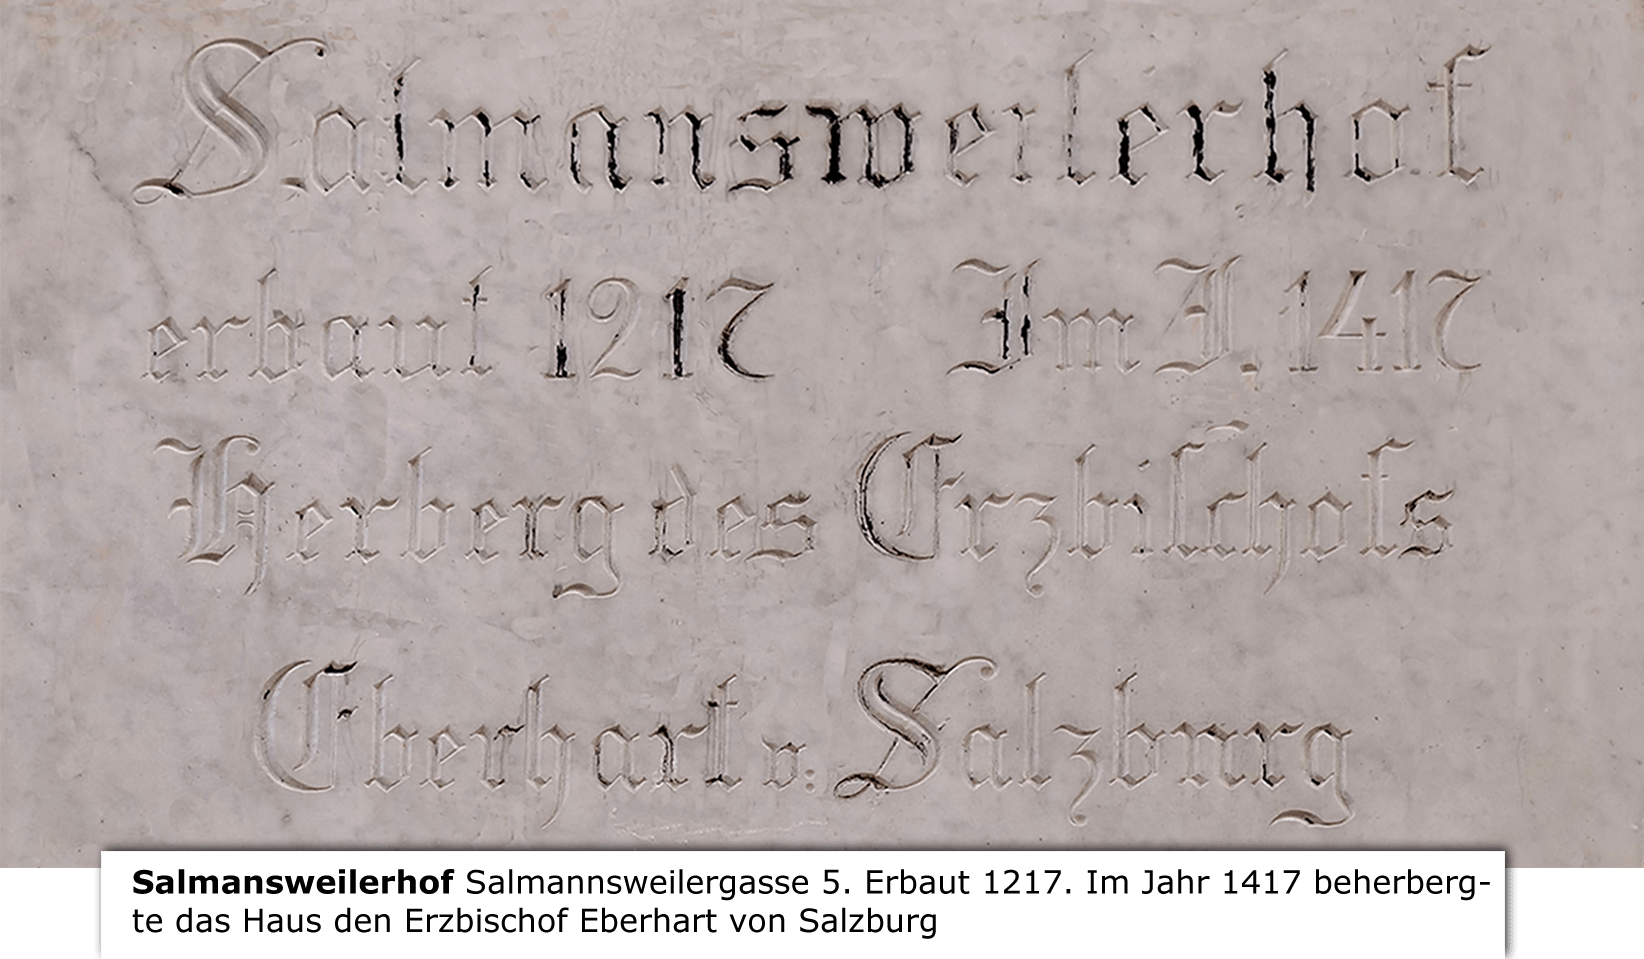 Salmansweilerhof
erbaut 1217 Im J. 1417
Herberg des Erzbischofs
Eberhart v: Salzburg
Salmansweilerhof Salmannsweilergasse 5. Erbaut 1217. Im Jahr 1417 beherberg-
te das Haus den Erzbischof Eberhart von Salzburg